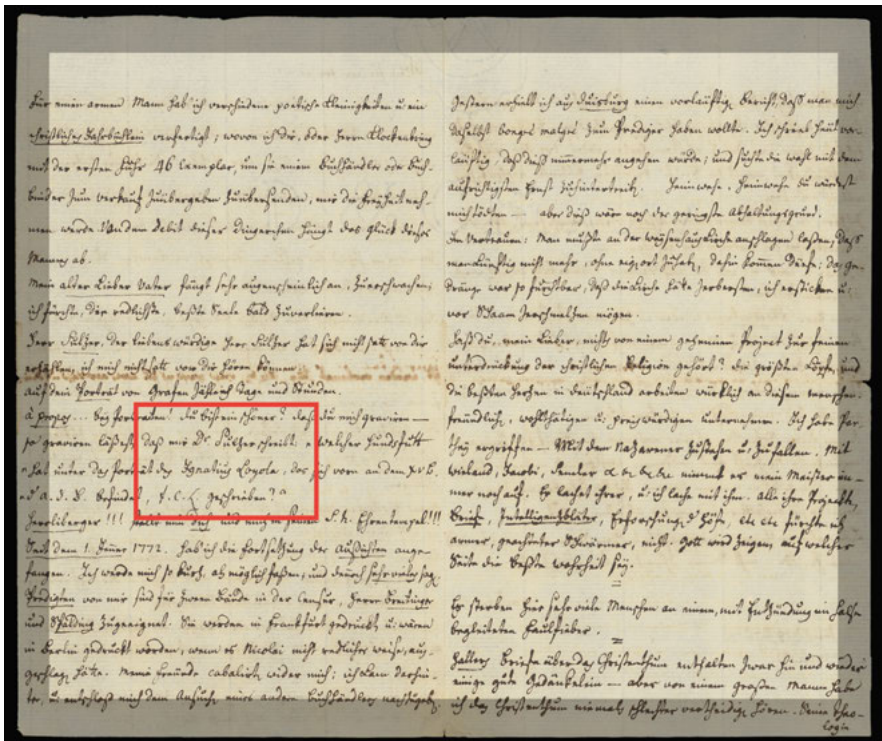 Für einen armen Mann hab' ich verschiedene poetische Kleinigkeiten u: ein
christliches Jahrbüchlein verfertigt; wovon ich dir, oder Herrn Klockenbring
mit der ersten Fuhr 46 Exemplar, um sie einem Buchhändler oder Buch-
binder zum Verkauf zuübergeben zuübersenden, mir die Freiheit neh-
men werde. Von dem Debit dieser Dingerchen hängt das Glück dieses
Mannes ab.
Mein alter lieber Vater fängt sehr augenscheinlich an, zuerschwachen;
ich fürchte, die redlichste, beßte Seele bald zuverlieren.
Herr Sulzer, der liebenswürdige Herr Sulzer hat sich nicht satt von dir
erzählen, ich mich nicht satt von dir hören können
auf dein Porträt von Grafen zähl ich Tage und Stunden.
à propos... bey Porträten! Du bist ein schöner? daß du mich graviren —
so graviren läßest, daß mir Dr Sulzer schreibt: welcher Hundsfutt
hat unter das Porträt des Ignatius Loyola, das sich vorn an dem XVB.
d' a. d. B. befindet, J. C. L. geschrieben?"
Herrliberger!!! dich Ehrentempel!!!
Seit dem 1. Jenner 1772. hab' ich die Fortsetzung der Außsichten ange-
fangen. Ich werde mich so kurz, als möglich faßen; und dennoch sehr vieles sagen
Predigten von mir sind für zween Bände in der Censur, Herrn Breitinger
und Spalding zugeeignet. Sie werden in Frankfurt gedruckt u: wären
in Berlin gedruckt worden, wenn es Nicolai nicht redlicher weise, aus-
geschlagen hätte. Meine Freünde cabalirten wider mich; ich kam darhin-
ter, u: entschloß mich dem Ansuchen eines andern Buchhändlers nachzugeben.
Gestern erhielt ich aus Duisburg einen vorläuftigen Bericht, daß man mich
daselbst zum Prediger haben wollte. Ich schrieb heüt vor-
läuftig, daß dieß nimmermehr angehen würde; und suchte die Wahl mit dem
aufrichtigsten Ernst zuhintertreiben. Heimwehe, Heimwehe du würdest
mich tödten — aber dieß wär noch der geringste Abhaltungsgrund.
Im Vertrauen: Man mußte an der Waysenhauskirche anschlagen laßen, daß
man künftig nicht mehr, ohne eigen ort zuhaben, dahin kommen dürfe; das Ge-
dränge war so furchtbar, daß die Kirche hätte zerbersten, ich ersticken u:
vor Schaam zerschmelzen mögen.
Hast du, mein Lieber, nichts von einem geheimen Project zur feinen
unterdrückung der christlichen Religion gehört? die größten Köpfe, und
die beßten Herzen in Deütschland arbeiten würklich an diesem menschen-
freündlichen, wohlthätigen u: preiswürdigen unternehmen. Ich habe Par-
they ergriffen — Mit dem Nazarener zustehen u: zufallen. Mit
Wieland, Jacobi, Semler nimmt es mein Meister im-
mer noch auf. Er lachet ihrer, u: ich lache mit ihm. alle ihre Projekte,
Briefe, Intelligenzbläter, Erforschung d' Höfe, etc etc fürchte ich
armer, geächteter Schwärmer, nicht. Gott wird zeigen, auf welcher
Seite die beßte Wahrheit sey.
Es sterben hier sehr viele Menschen an einem, mit Entzündung im Halse
begleiteten Faulfieber.
Hallers Briefe über das Christenthum enthalten zwar hin und wieder
einige gute Gedänkelein — aber von einem großen Manne habe
ich das Christenthum niemals schlechter vertheidigen hören. Seine Theo-
logie